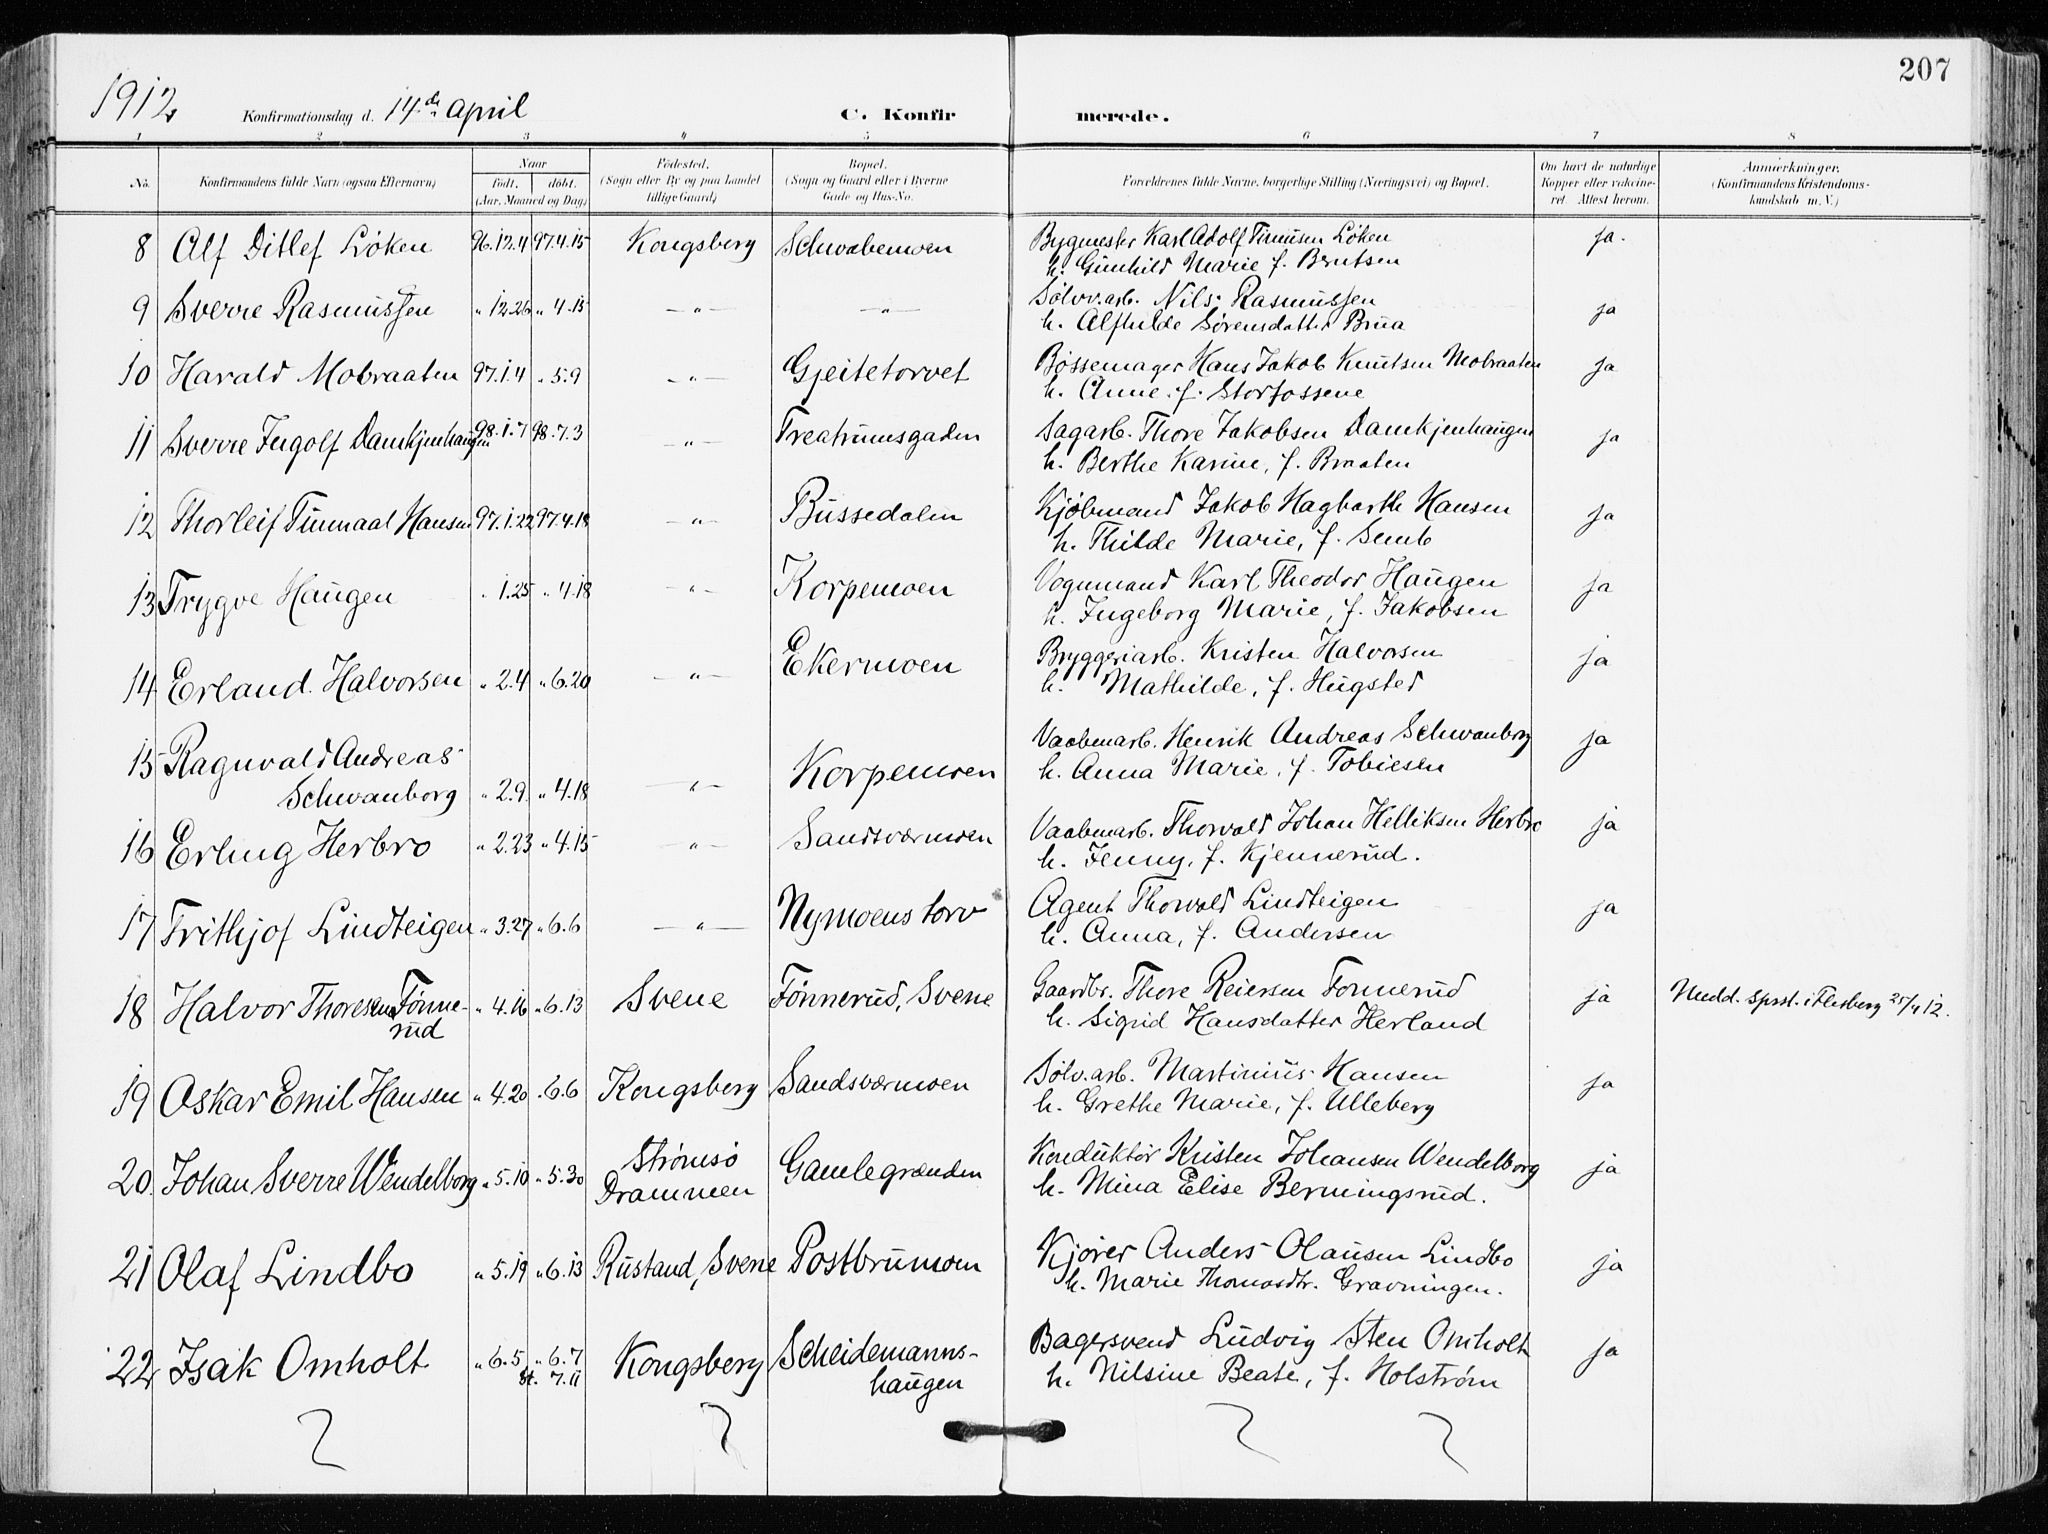 207
1912
Konfirmationsdag d. 14de april
C. Konfirmerede.
1 2 3 4 5 6 7 8
No. Konfirmandens fulde Navn (ogsaa Efternavn) Naar født. døbt. (Aar, Maaned og Dag) Fødested. (Sogn eller By og paa Landet tillige Gaard) Bopæl. (Sogn og Gaard eller i Byerne Gade og Hus-No. Forældrenes fulde Navne, borgerlige Stilling (Næringsvei) og Bopæl. Om havt de naturlige Kopper eller vakcineret. Attest herom. Anmærkninger. (Konfirmandens Kristendomskundskab m. V.)
8 Alf Ditlef Løken 96.12.4 97.4.15 Kongsberg Schwabemoen Bygmester Karl Adolf Løken ja.
h. Gunhild Marie f. Berntsen
9 Sverre Rasmussen " 12.26 " 4.15 —"— —"— Sølvv.arb. Nils Rasmussen ja
h. Alfhilde Sørensdatter Brua
10 Harald Mobraaten 97.1.4 " 5.9 —"— Gjeitetorvet Bøssemager Hans Jakob Knutsen Mobraaten ja
h. Anne f. Storfossene
11 Sverre Ingolf Damkjenhaugen 98.1.7 98.7.3 —"— Treatrumsgaden Sagarb. Thore Jakobsen Damkjenhaugen ja
h. Berthe Karine, f. Braaten
12 Thorleif Tinmaal Hansen 97.1.22 97.4.18 —"— Bussedalen Kjøbmand Jakob Hagbarth Hansen ja
h. Thilde Marie, f. Semb
13 Trygve Haugen " 1.25 " 4.18 —"— Korpemoen Vognmand Karl Theodor Haugen ja
h. Ingeborg Marie, f. Jakobsen
14 Erland Halvorsen " 2.4 " 6.20 —"— Ekermoen Bryggeriarb. Kristen Halvorsen ja
h. Mathilde, f. Hugsted
15 Ragnvald Andreas Schwanborg " 2.9 " 4.18 —"— Korpemoen Vaabenarb. Henrik Andreas Schwanborg ja
h. Anna Marie, f. Tobiesen
16 Erling Herbro " 2.23 " 4.15 —"— Sandsværmoen Vaabenarb. Thorvald Johan Helliksen Herbro ja
h. Jenny, f. Kjennerud.
17 Frithjof Lindteigen " 3.27 " 6.6 —"— Nymoens torv Agent Thorvald Lindteigen ja
h. Anna, f. Andersen
18 Halvor Thoresen Fønnerud " 4.16 " 6.13 Svene Fønnerud, Svene Gaardbr. Thore Reiersen Fonnerud ja Medd. sprst. i Flesberg 25/4 12.
h. Sigrid Hansdatter Herland
19 Oskar Emil Hansen " 4.20 " 6.6 Kongsberg Sandsværmoen Sølv.arb. Martinius Hansen ja
h. Grethe Marie, f. Ulleberg
20. Johan Sverre Wendelborg " 5.10 " 5.30 Strømsø Drammen Gamlegrænden Konduktør Kristen Johansen Wendelborg ja
h. Mina Elise Bermingsrud.
21 Olaf Lindbo " 5.19 " 6.13 Rustand, Svene Postbrumoen Kjører Anders Olausen Lindbo ja
h. Marie Thomasdtr. Gravningen.
22 Isak Omholt " 6.5 " 6.7 st. 7.11 Kongsberg Scheidemannshaugen Bagersvend Ludvig Sten Omholt ja
h. Nilsine Beate, f. Holstrøm